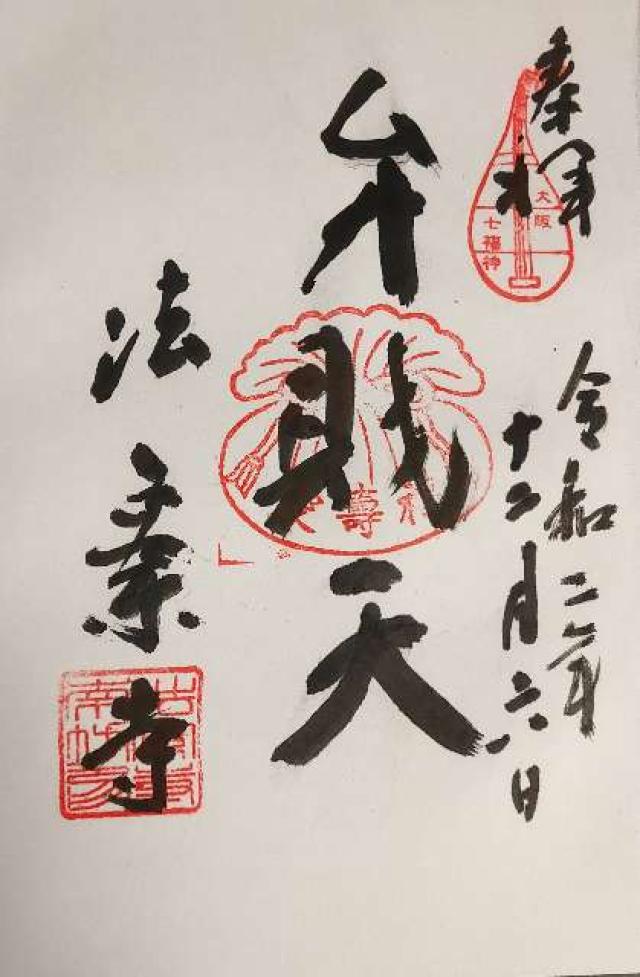 奉拝
大阪
七福神
令和二年
十二月六日
弁財天
寿
法案寺